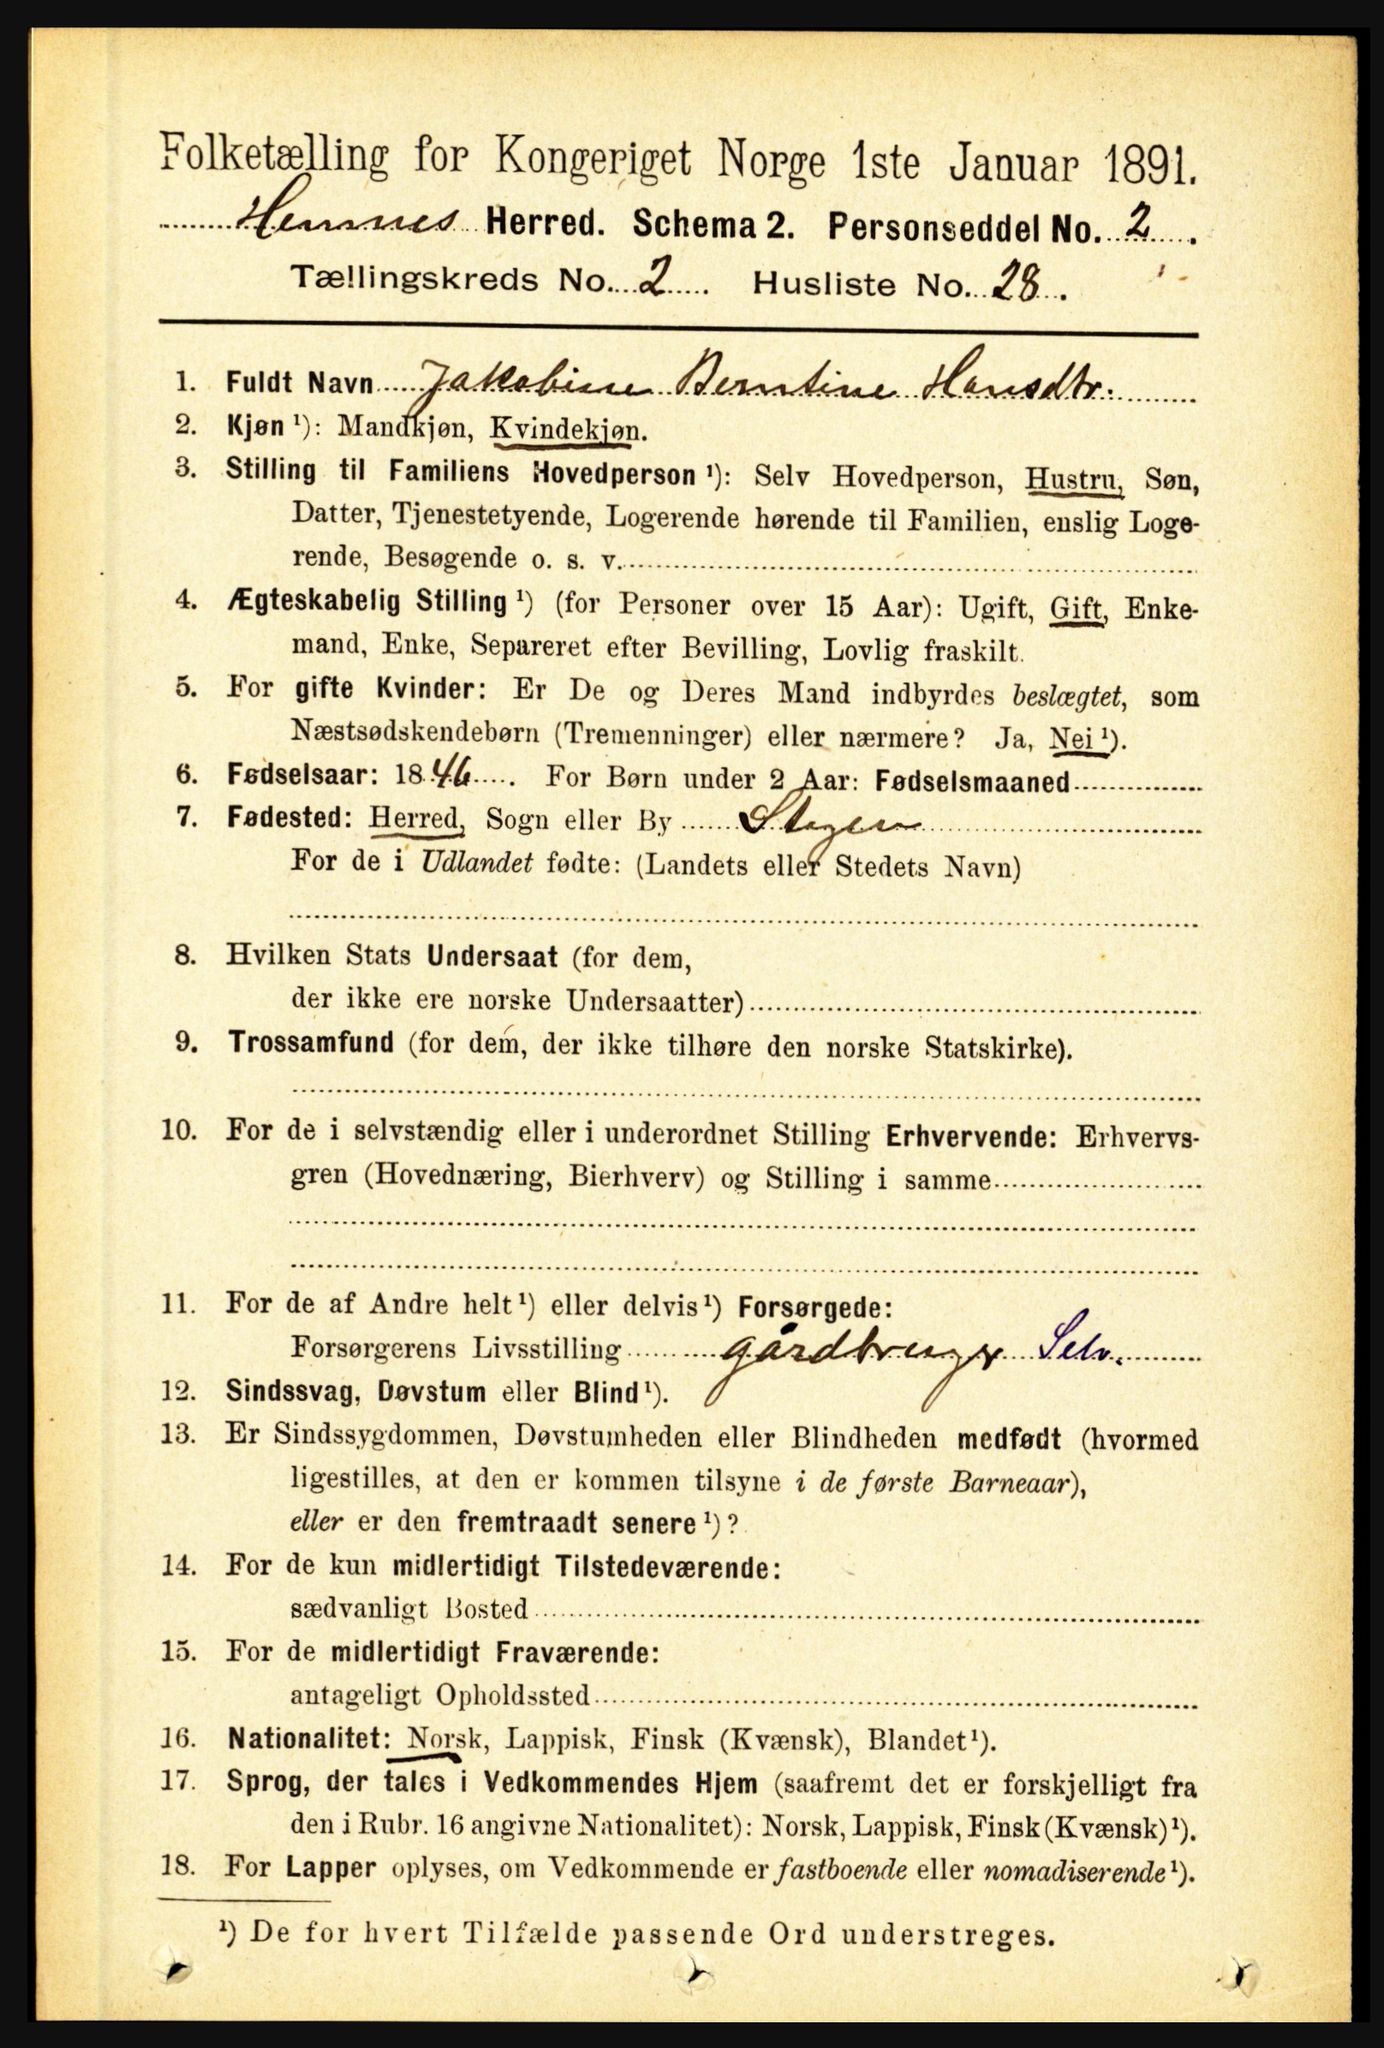 Folketælling for Kongeriget Norge 1ste Januar 1891.
Hemnes Herred. Schema 2. Personseddel No. 2.
Tællingskreds No. 2. Husliste No. 28.
1. Fuldt Navn Jakobine Berntine Hansdtr.
2. Kjøn ¹): Mandkjøn, Kvindekjøn.
3. Stilling til Familiens Hovedperson ¹): Selv Hovedperson, Hustru, Søn,
Datter, Tjenestetyende, Logerende hørende til Familien, enslig Loge-
rende, Besøgende o. s. v.
4. Ægteskabelig Stilling ¹) (for Personer over 15 Aar): Ugift, Gift, Enke-
mand, Enke, Separeret efter Bevilling, Lovlig fraskilt.
5. For gifte Kvinder: Er De og Deres Mand indbyrdes beslægtet, som
Næstsødskendebørn (Tremenninger) eller nærmere? Ja, Nei ¹).
6. Fødselsaar: 1846. For Børn under 2 Aar: Fødselsmaaned
7. Fødested: Herred, Sogn eller By Stegen
For de i Udlandet fødte: (Landets eller Stedets Navn)
8. Hvilken Stats Undersaat (for dem,
der ikke ere norske Undersaatter)
9. Trossamfund (for dem, der ikke tilhøre den norske Statskirke).
10. For de i selvstændig eller i underordnet Stilling Erhvervende: Erhvervs-
gren (Hovednæring, Bierhverv) og Stilling i samme
11. For de af Andre helt ¹) eller delvis ¹) Forsørgede:
Forsørgerens Livsstilling gårdbruger Selv.
12. Sindssvag, Døvstum eller Blind ¹).
13. Er Sindssygdommen, Døvstumheden eller Blindheden medfødt (hvormed
ligestilles, at den er kommen tilsyne i de første Barneaar),
eller er den fremtraadt senere ¹)?
14. For de kun midlertidigt Tilstedeværende:
sædvanligt Bosted
15. For de midlertidigt Fraværende:
antageligt Opholdssted
16. Nationalitet: Norsk, Lappisk, Finsk (Kvænsk), Blandet ¹).
17. Sprog, der tales i Vedkommendes Hjem (saafremt det er forskjelligt fra
den i Rubr. 16 angivne Nationalitet): Norsk, Lappisk, Finsk (Kvænsk) ¹).
18. For Lapper oplyses, om Vedkommende er fastboende eller nomadiserende ¹).
¹) De for hvert Tilfælde passende Ord understreges.